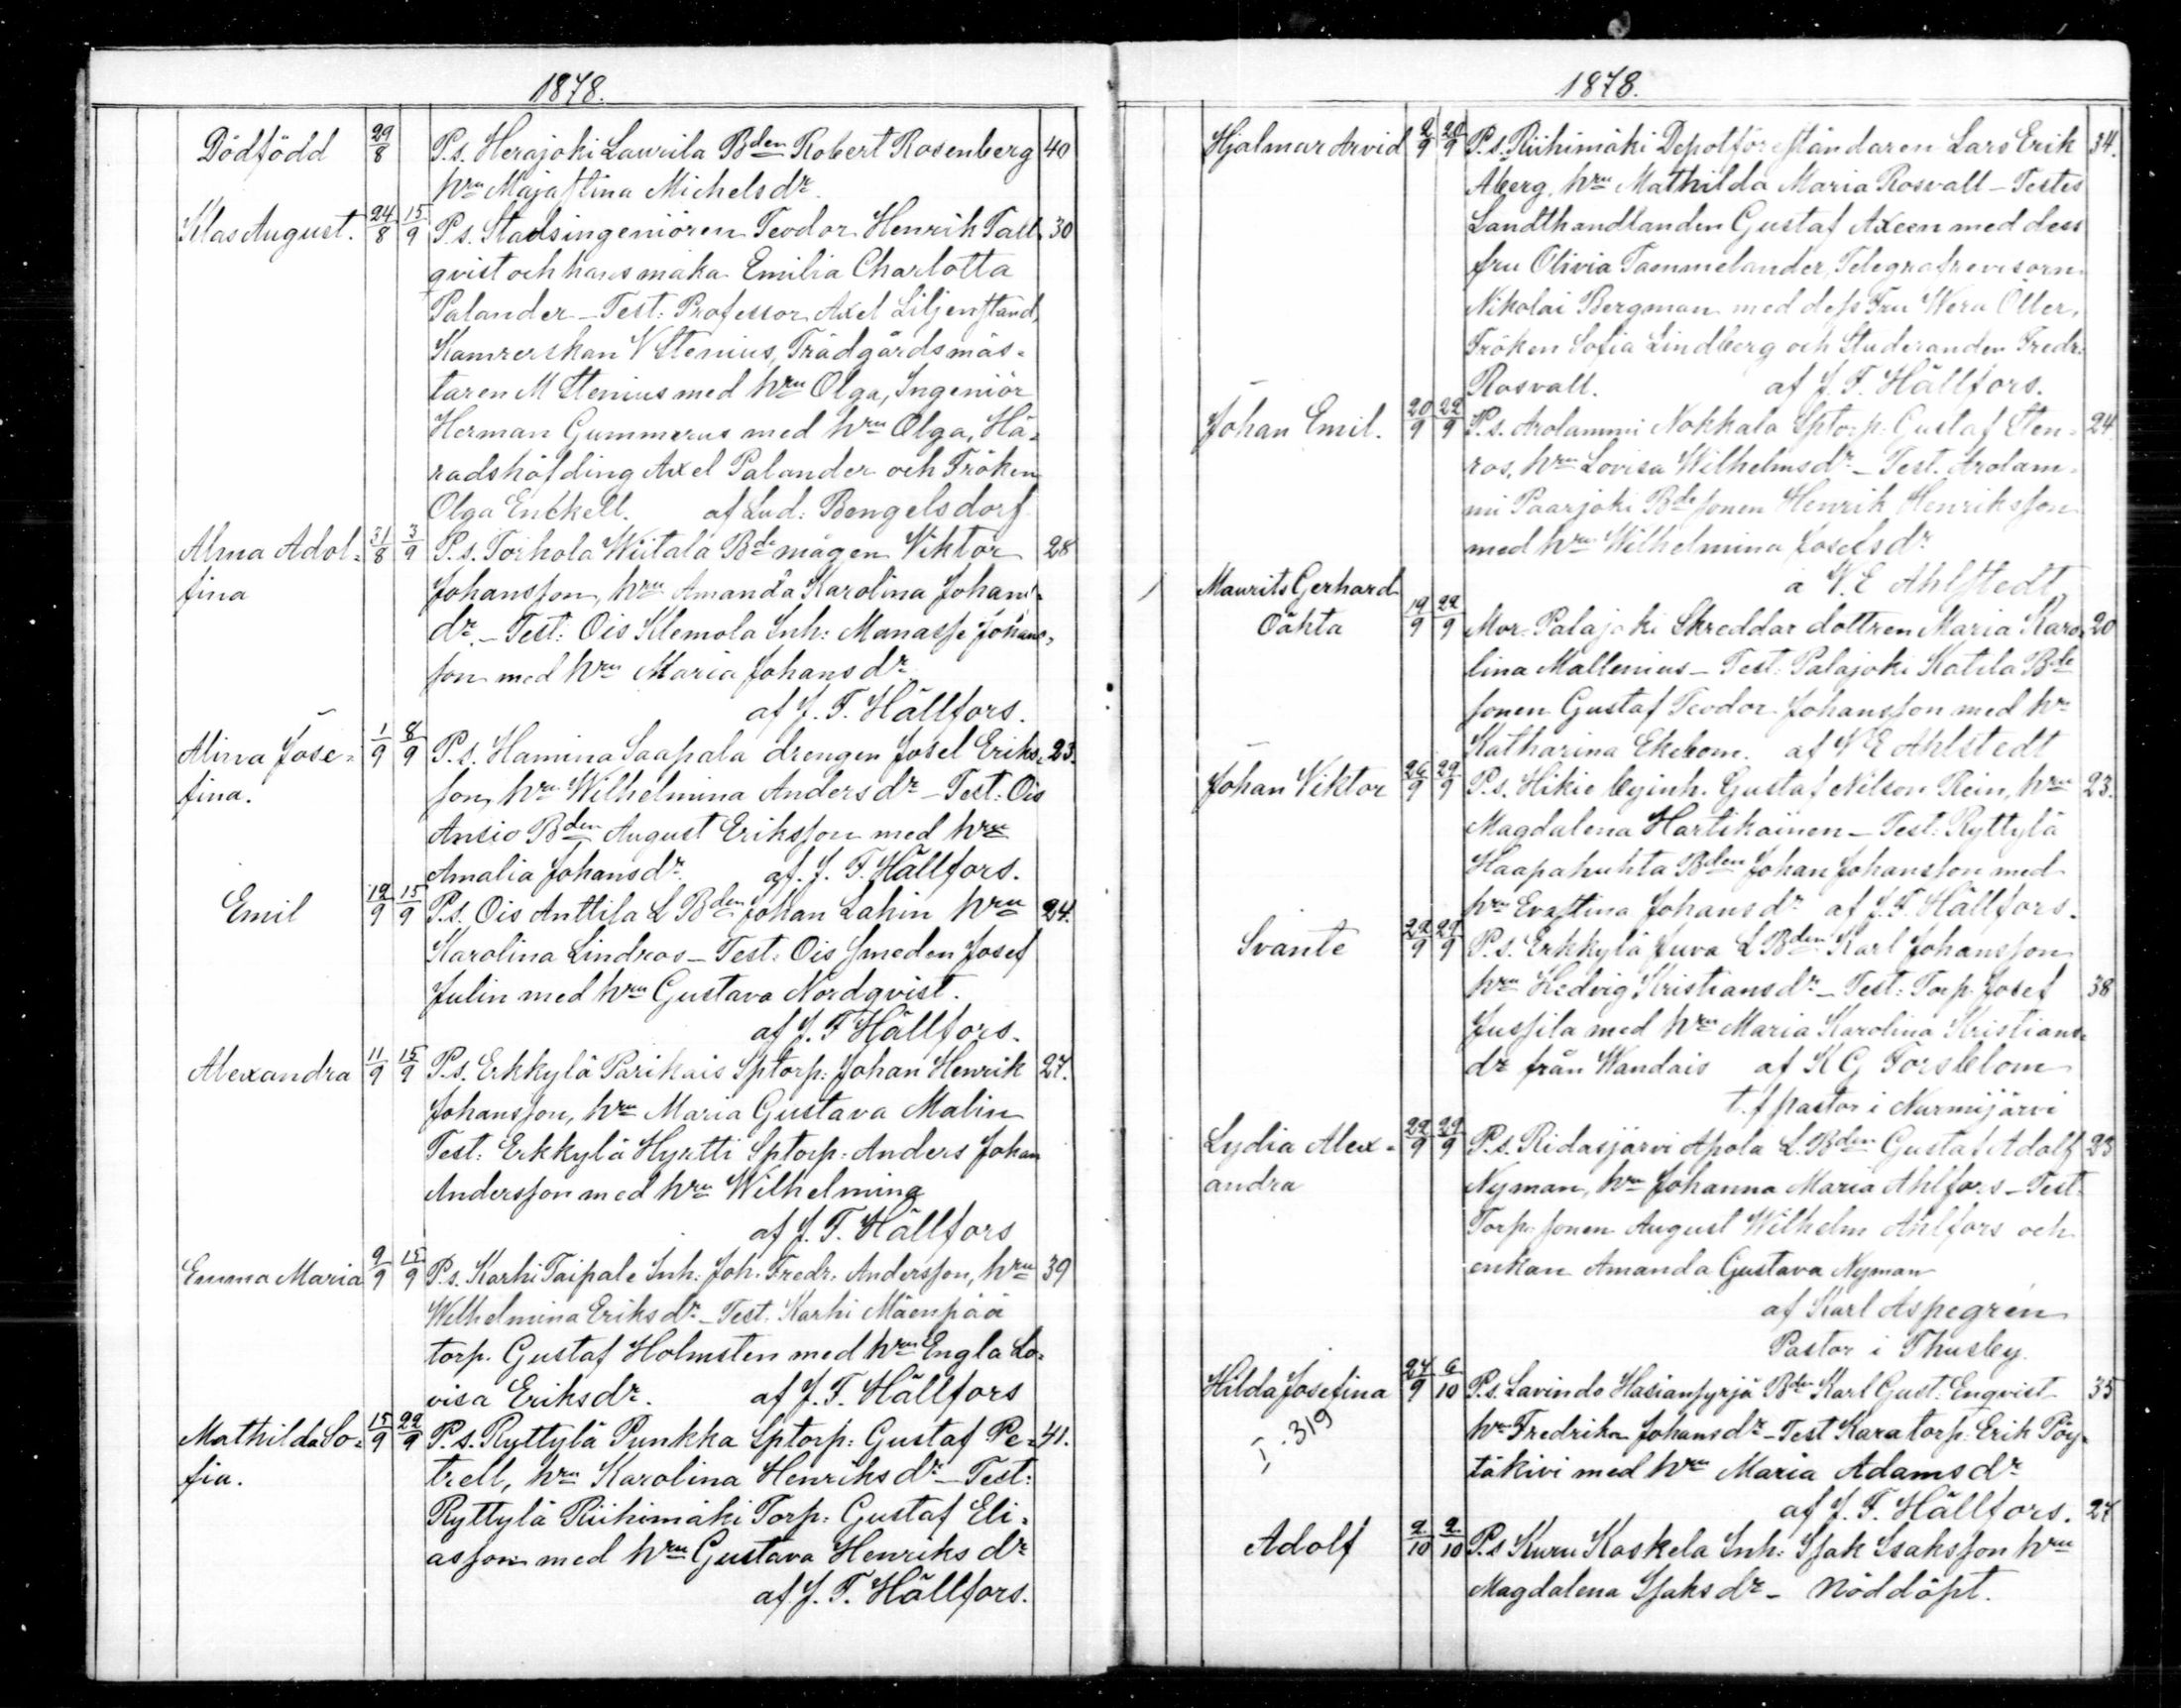 1878.
Dödfödd 29/8 P.s. Herajoki Laurila Bden Robert Rosenberg 40
hru Majastina Michelsdr.
Klas August. 24/8 15/9 P.s. Stadsingeniören Teodor Henrik Tall- 30
qvist och hans maka Emilia Charlotta
Palander – Test: Professor Axel Liljenstrand,
Kamrerskan V Stenius, Trädgårdsmäs-
taren M Stenius med hru Olga, Ingeniör
Herman Gummerus med hru Olga, Hä-
radshöfding Axel Palander och Fröken
Olga Enckell. af Lud: Bengelsdorf
Alma Adol- 31/8 3/9 P.s. Torhola Wiitala Bde mågen Viktor 28
fina Johansson, hru Amanda Karolina Johans-
dr. – Test: Ois Klemola Inh: Manasse Johans-
son med hru Maria Johansdr
af J. F. Hällfors.
Alina Jose- 1/9 8/9 P.s. Hamina Saapala drengen Josef Eriks- 23.
fina. son, hru Wilhelmina Andersdr – Test: Ois
Ansio Bden August Eriksson med hru
Amalia Johansdr. af J. F. Hällfors.
Emil 12/9 15/9 P.s. Ois Anttila L Bden Johan Lahin hru 24.
Karolina Lindroos – Test: Ois smeden Josef
Julin med hru Gustava Nordqvist.
af J. F Hällfors.
Alexandra 11/9 15/9 P.s. Erkkylä Parikais Sptorp: Johan Henrik 27.
Johansson, hru Maria Gustava Malin
Test: Erkkylä Hyrtti Sptorp: Anders Johan
Andersson med hru Wilhelmina
af J. F. Hällfors
Emma Maria 9/9 15/9 P.s. Karhi Taipale Inh: Joh. Fredr. Andersson, hru 39
Wilhelmina Eriksdr – Test: Karhi Mäenpää
torp. Gustaf Holmsten med hru Engla Lo-
visa Eriksdr. af J. F. Hällfors
Mathilda So- 15/9 22/9 P.s. Ryttylä Punkka Sptorp: Gustaf Pe- 41.
fia. trell, hru Karolina Henriksdr – Test:
Ryttylä Riihimäki Torp: Gustaf Eli-
asson med hru Gustava Henriksdr
af J. F. Hällfors.
1878.
Hjalmar Arvid 2/9 20/9 P.s. Riihimäki Depotföreståndaren Lars Erik 34.
Åberg, hru Mathilda Maria Rosvall – Testes
Landthandlanden Gustaf Axeen med dess
fru Olivia Tammelander, Telegrafrevisorn
Nikolai Bergman med dess Fru Wera Öller,
Fröken Sofia Lindberg och Studeranden Fredr:
Rosvall. af J. F. Hällfors.
Johan Emil. 20/9 22/9 P.s. Arolammi Nokkala Sptorp: Gustaf Sten- 24.
ros, hru Lovisa Wilhelmsdr – Test. Arolam-
mi Paarjoki Bdesonen Henrik Henriksson
med hru Wilhelmina Josefsdr
a V. E Ahlstedt
Maurits Gerhard
Oäkta 19/9 22/9 Mor. Palajoki Skreddar dottren Maria Karo- 20
lina Mallenius – Test: Palajoki Katila Bde
sonen Gustaf Teodor Johansson med hru
Katharina Ekebom. af V E Ahlstedt
Johan Viktor 26/9 29/9 P.s. Hikie byinh. Gustaf Nilson Rein, hru 23.
Magdalena Hartikainen – Test: Ryttylä
Haapahuhta Bden Johan Johansson med
hru Evastina Johansdr af J. F. Hällfors.
Svante 22/9 29/9 P.s. Erkkylä Juva L Bden Karl Johansson
hru Hedvig Kristiansdr – Test: Torp. Josef 38
Jussila med hru Maria Karolina Kristians-
dr från Wandais af K G Forsblom
t. f pastor i Nurmijärvi
Lydia Alex- 22/9 29/9 P.s. Ridasjärvi Apola L. Bden Gustaf Adolf 23
andra Nyman, hru Johanna Maria Ahlfors – Test:
Torp. sonen August Wilhelm Ahlfors och
enkan Amanda Gustava Nyman
af Karl Aspegrén
Pastor i Thusby.
Hilda Josefina 24/9 6/10 P.s. Lavindo Hasianpyrjä Bden Karl Gust. Enqvist 35
I, 319 hru Fredrika Johansdr – Test Kara torp: Erik Pöy-
täkivi med hru Maria Adamsdr
af J. F. Hällfors. 27
Adolf 2/10 2/10 P.s Kuru Koskela Inh: Isak Isaksson hru
Magdalena Isaksdr – Nöddöpt.